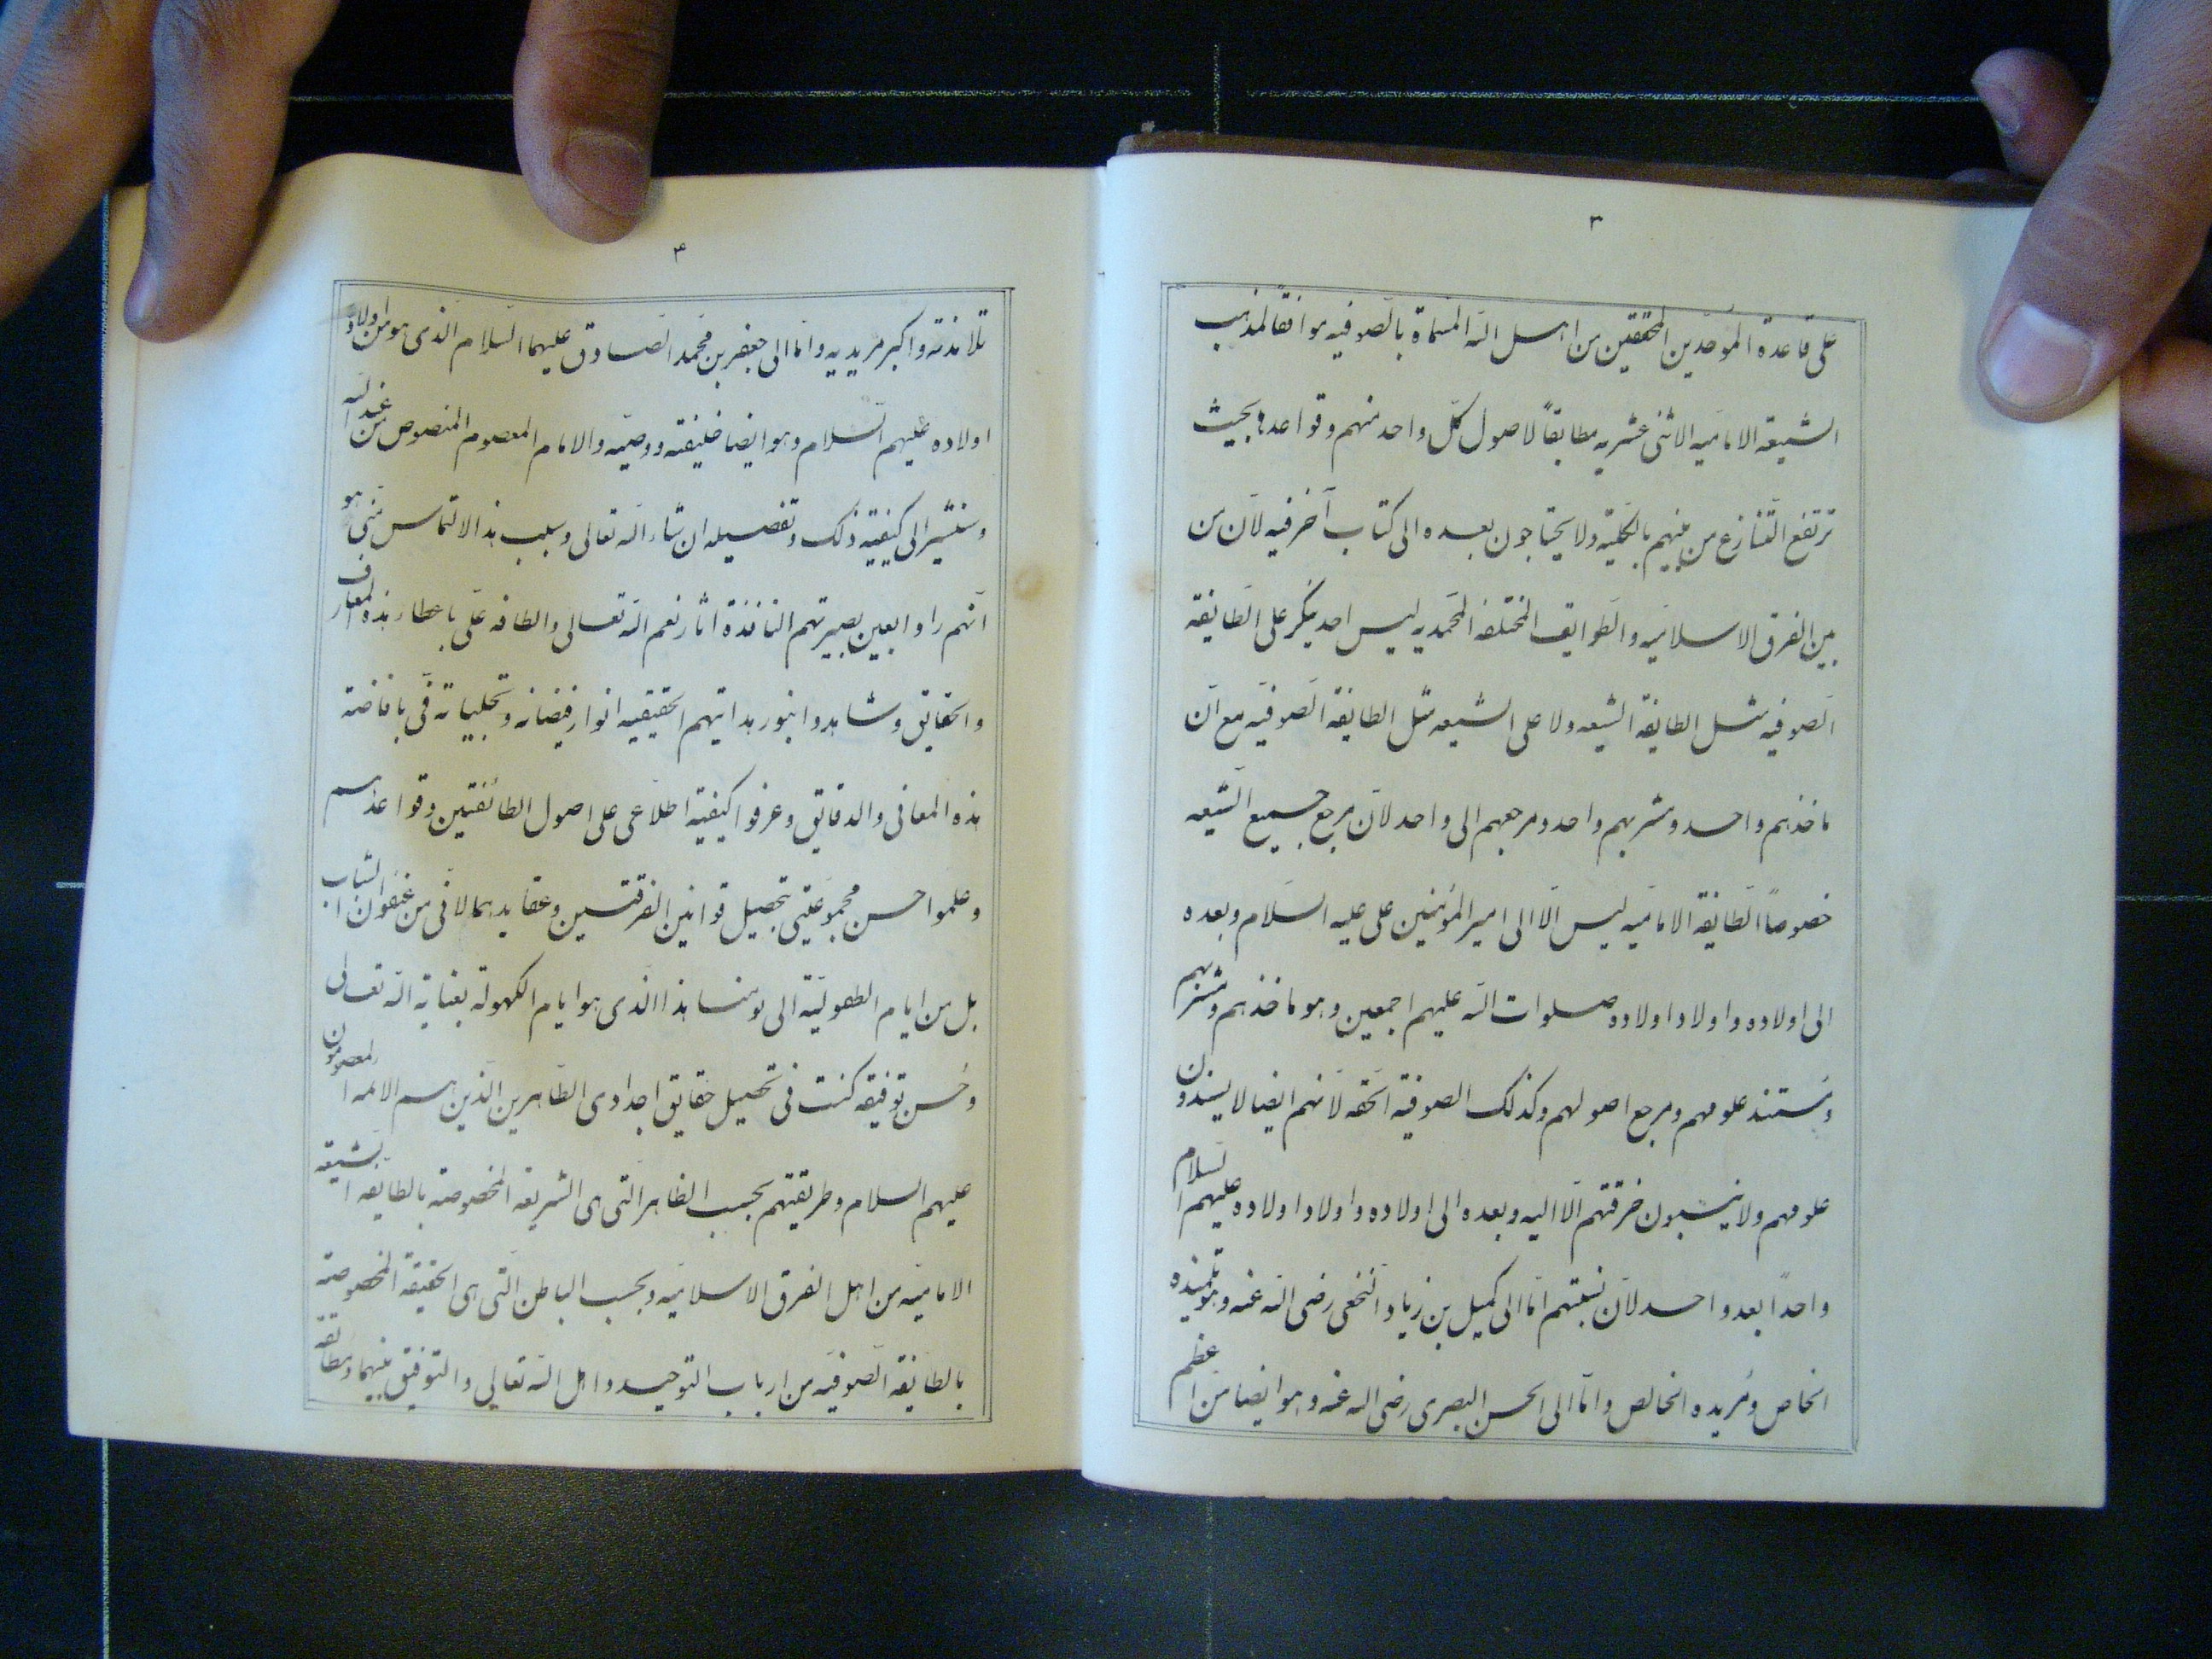 ٣
على قاعدة الموحّدين المحققين من اهل الله المسماة بالصوفيه موافقاً لمذهب
الشيعة الاماميه الاثنى عشريه مطابقاً لاصول كل واحد منهم وقواعدها بحيث
ترتفع التنازع من بينهم بالكلية ولا يحتاجون بعده الى كتاب آخر فيه لان من
بين الفرق الاسلاميه والطوايف المختلفه المحمديه ليس احد ينكر على الطايفة
الصوفيه مثل الطايفة الشيعه ولا على الشيعه مثل الطايفة الصوفيه مع ان
ماخذهم واحد ومشربهم واحد ومرجعهم الى واحد لان مرجع جميع الشيعه
خصوصاً الطايفة الاماميه ليس الّا الى امير المؤمنين على عليه السلام وبعده
الى اولاده واولاد اولاده صلوات الله عليهم اجمعين وهو ماخذهم ومشربهم
ومستند علومهم ومرجع اصولهم وكذلك الصوفية الحقه لانهم ايضا لا يسندون
علومهم ولا ينسبون خرقتهم الّا اليه وبعده الى اولاده واولاد اولاده عليهم السلام
واحداً بعد واحد لان نسبتهم امّا الى كميل بن زياد النخعى رضى الله عنه وهو تلميذه
الخاص ومُريده الخالص وامّا الى الحسن البصرى رضى الله عنه وهو ايضا من اعظم
۴
تلامذته واكبر مريديه وامّا الى جعفر بن محمد الصادق عليهما السلام الذى هو من اولاد
اولاده عليهم السلام وهو ايضا خليفته ووصيّه والامام المعصوم المنصوص من عند الله
وسنشير الى كيفية ذلك وتفصيله ان شاء الله تعالى وسبب هذا الالتماس منّى هو
انّهم راوا بعين بصيرتهم النافذة اثار نعم الله تعالى والطافه علّى باعطاء هذه المعارف
والحقايق وشاهدوا بنور هدايتهم الحقيقيه انوار فيضانه وتجلياته فّى بافاضة
هذه المعانى والدقايق وعرفوا كيفية اطلاعى على اصول الطائفتين وقواعدهم
وعلموا حسن مجموعيتى بتحصيل قوانين الفرقتين وعقايدهما لا فى من عنفوان الشباب
بل من ايام الطفوليّة الى يومنا هذا الذى هو ايام الكهولة بعناية الله تعالى
وحُسن توفيقه كنت فى تحصيل حقايق اجدادى الطاهرين الّذين هم الائمه المعصومون
عليهم السلام وطريقتهم بحسب الظاهر التى هى الشريعة المخصوصة بالطايفه الشيعة
الاماميّه من اهل الفرق الاسلاميّه وبحسب الباطن التى هى الحقيقة المخصوصة
بالطايفة الصوفيّه من ارباب التوحيد واهل الله تعالى والتوفيق بينهما ومطابقة